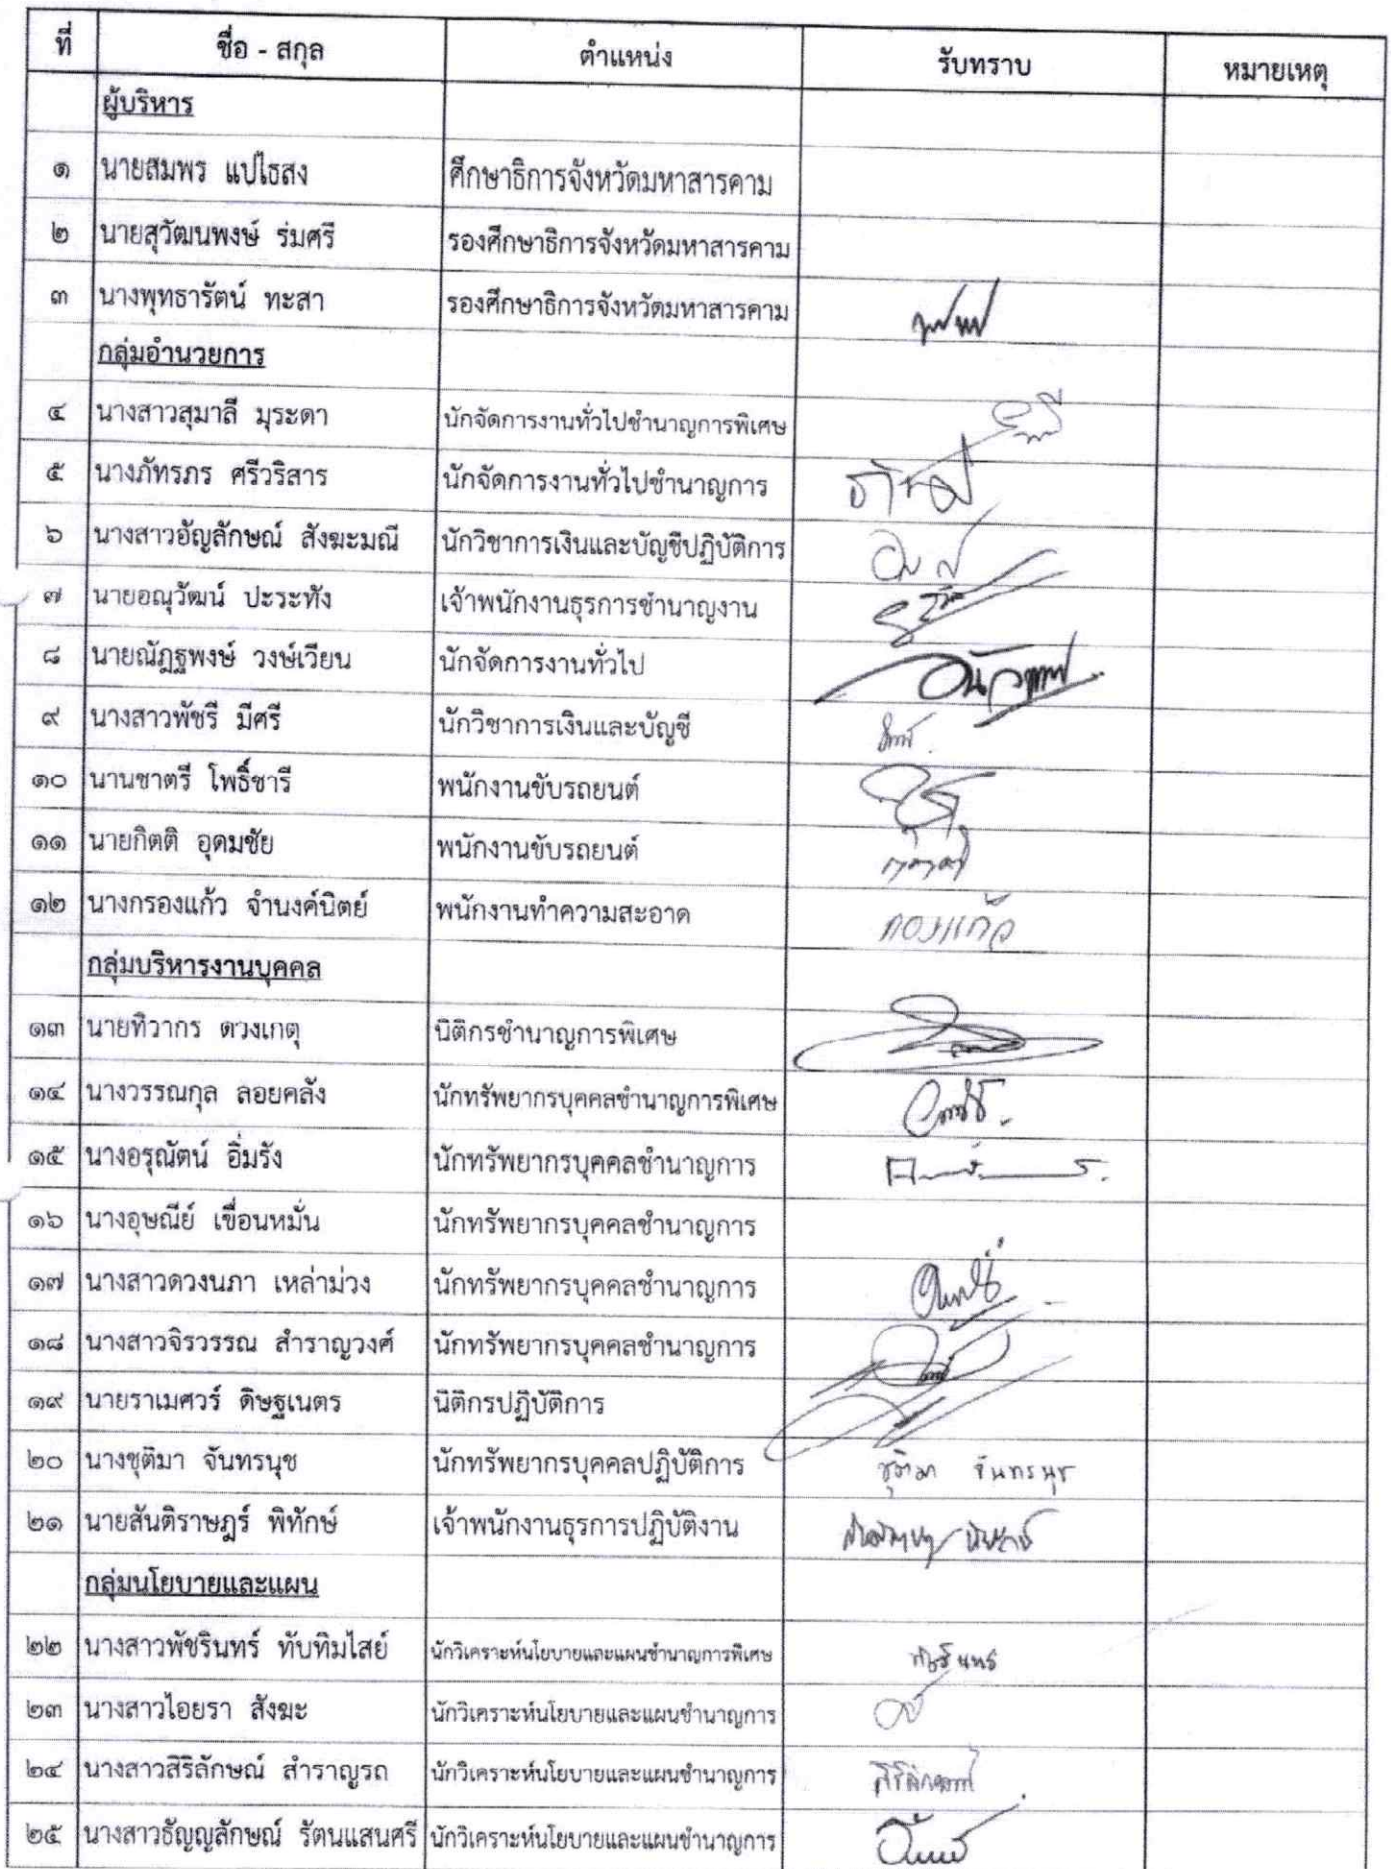 ที่ ชื่อ - สกุล ตำแหน่ง รับทราบ หมายเหตุ
ผู้บริหาร
๑ นายสมพร แปไธสง ศึกษาธิการจังหวัดมหาสารคาม
๒ นายสุวัฒนพงษ์ ร่มศรี รองศึกษาธิการจังหวัดมหาสารคาม
๓ นางพุทธารัตน์ ทะสา รองศึกษาธิการจังหวัดมหาสารคาม
กลุ่มอำนวยการ
๔ นางสาวสุมาลี มุระดา นักจัดการงานทั่วไปชำนาญการพิเศษ
๕ นางภัทรภร ศรีวริสาร นักจัดการงานทั่วไปชำนาญการ
๖ นางสาวอัญลักษณ์ สังฆะมณี นักวิชาการเงินและบัญชีปฏิบัติการ
๗ นายอณุวัฒน์ ปะระทัง เจ้าพนักงานธุรการชำนาญงาน
๘ นายณัฎฐพงษ์ วงษ์เวียน นักจัดการงานทั่วไป
๙ นางสาวพัชรี มีศรี นักวิชาการเงินและบัญชี
๑๐ นานชาตรี โพธิ์ชารี พนักงานขับรถยนต์
๑๑ นายกิตติ อุดมชัย พนักงานขับรถยนต์
๑๒ นางกรองแก้ว จำนงค์นิตย์ พนักงานทำความสะอาด
กลุ่มบริหารงานบุคคล
๑๓ นายทิวากร ดวงเกตุ นิติกรชำนาญการพิเศษ
๑๔ นางวรรณกุล ลอยคลัง นักทรัพยากรบุคคลชำนาญการพิเศษ
๑๕ นางอรุณัตน์ อิ่มรัง นักทรัพยากรบุคคลชำนาญการ
๑๖ นางอุษณีย์ เขื่อนหมั่น นักทรัพยากรบุคคลชำนาญการ
๑๗ นางสาวดวงนภา เหล่าม่วง นักทรัพยากรบุคคลชำนาญการ
๑๘ นางสาวจิรวรรณ สำราญวงศ์ นักทรัพยากรบุคคลชำนาญการ
๑๙ นายราเมศวร์ ดิษฐเนตร นิติกรปฏิบัติการ
๒๐ นางชุติมา จันทรนุช นักทรัพยากรบุคคลปฏิบัติการ ชุติมา จันทรนุช
๒๑ นายสันติราษฎร์ พิทักษ์ เจ้าพนักงานธุรการปฏิบัติงาน
กลุ่มนโยบายและแผน
๒๒ นางสาวพัชรินทร์ ทับทิมไสย์ นักวิเคราะห์นโยบายและแผนชำนาญการพิเศษ
๒๓ นางสาวไอยรา สังฆะ นักวิเคราะห์นโยบายและแผนชำนาญการ
๒๔ นางสาวสิริลักษณ์ สำราญรถ นักวิเคราะห์นโยบายและแผนชำนาญการ
๒๕ นางสาวธัญญลักษณ์ รัตนแสนศรี นักวิเคราะห์นโยบายและแผนชำนาญการ